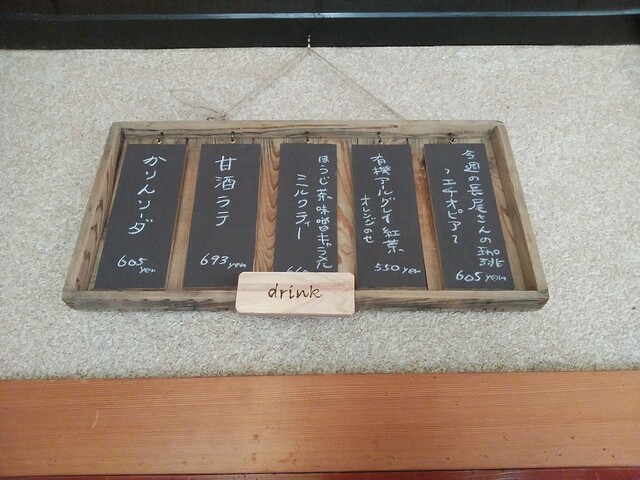 今週の長尾さんの珈琲
〜エチオピア〜
605yen
有機アールグレイ紅茶
オレンジのせ
550yen
ほうじ茶味噌キャラメル
ミルクティー
甘酒ラテ
693yen
かりんソーダ
605yen
drink